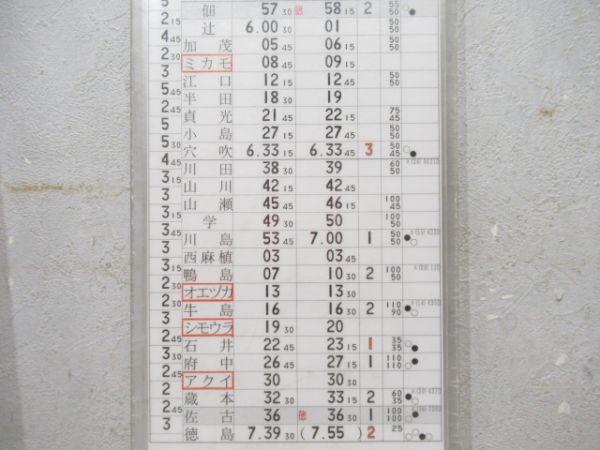 5
佃 57 30 徳 58 15 2 55 50
2 15
辻 6.00 30 01
4 45
加茂 05 45 06 15 50 50
2 30
ミカモ 08 45 09 15
3
江口 12 15 12 45 50 50
5 45
半田 18 30 19
2 45
貞光 21 45 22 15 75 45
5
小島 27 15 27 45 50 50
5 30
穴吹 6.33 15 6.33 45 3 50 45
5
川田 38 30 39 60 50
3
山川 42 15 42 45
3
山瀬 45 45 46 15 100 45
3
学 49 30 50 100 50
3
川島 53 45 7.00 1 50 50
3
西麻植 03 03 45
3
鴨島 07 10 30 2 100 50
2 30
オエヅカ 13 13 30
2 45
牛島 16 16 30 2 110 90
3
シモウラ 19 30 20
2 45
石井 22 45 23 15 1 35 35
3
府中 26 45 27 15 1 110 110
2 45
アクイ 30 30 30
2 45
蔵本 32 30 33 15 2 60 35
2 45
佐古 36 徳 36 30 1 100 100
3
徳島 7.39 30 (7.55) 2 25